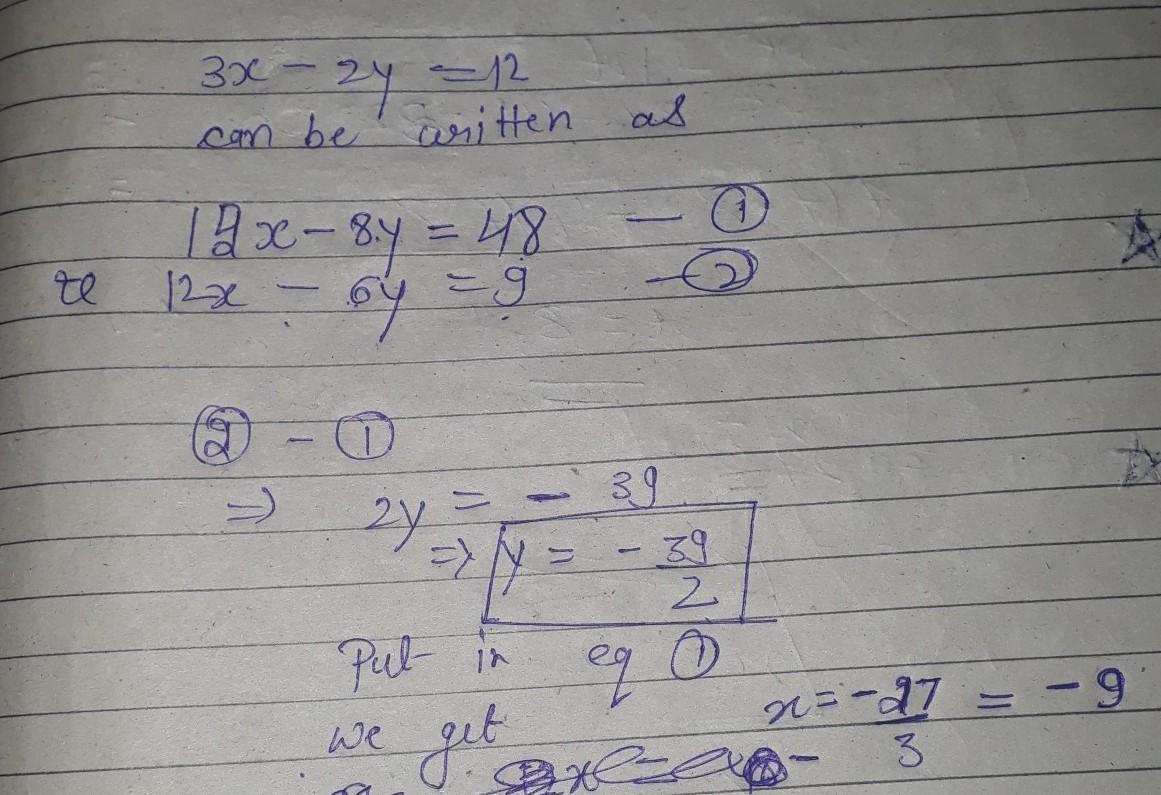 3x - 2y = 12
can be written as
12x - 8y = 48 — ①
12x - 6y = 9 — ②
② - ①
⇒ 2y = - 39
⇒ y = - 39/2
Put in eq ①
we get x = -27/3 = -9